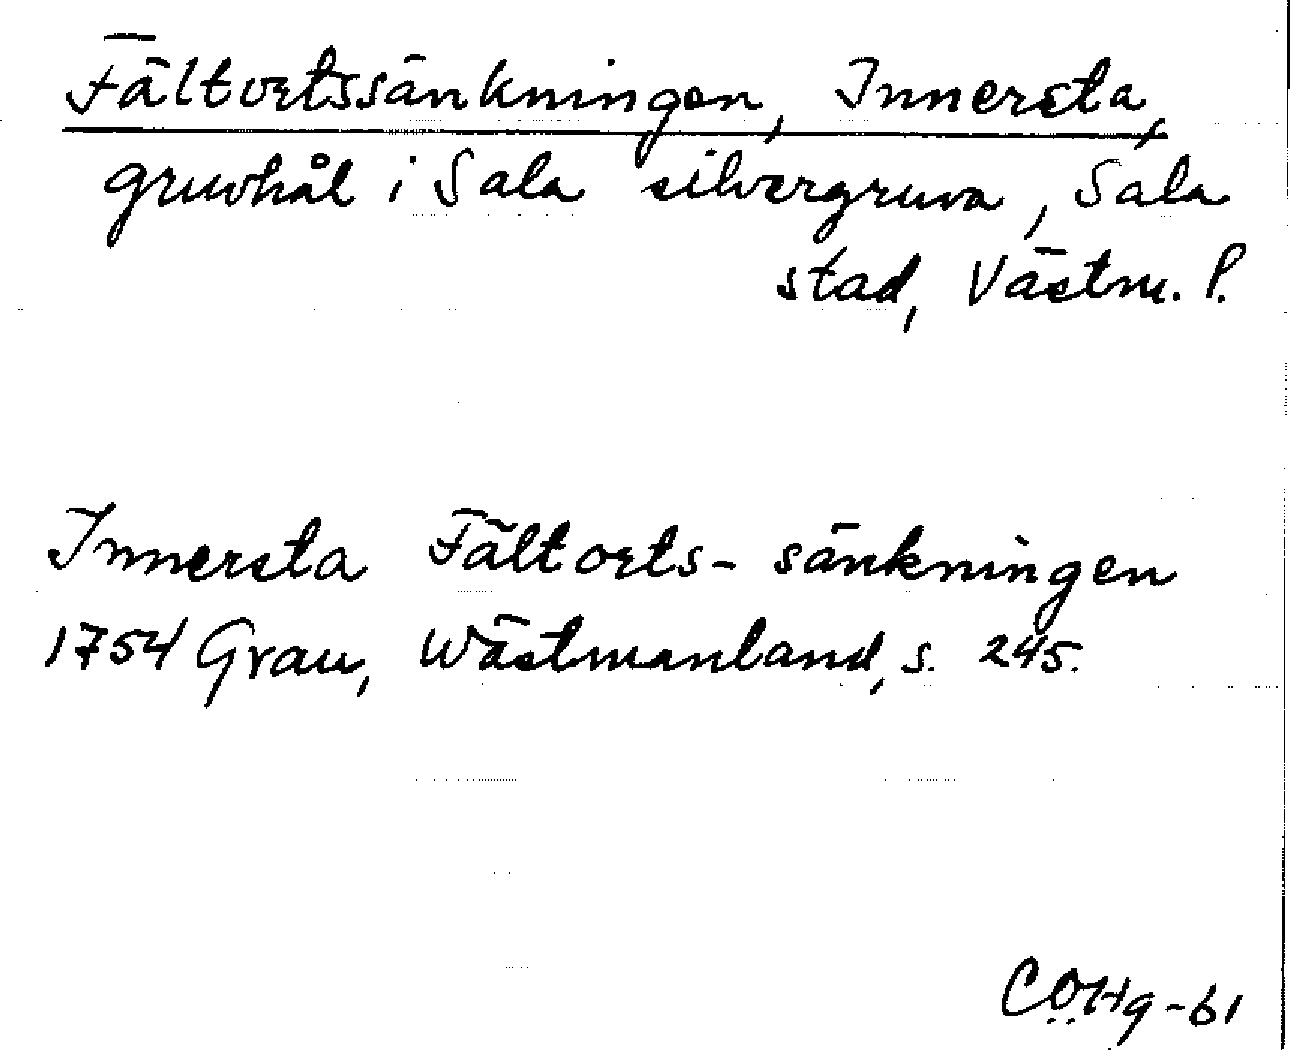 Fältortssänkningen, Innersta,
gruvhål i Sala silvergruva, Sala
stad, Västm. l.
Innersta Fältorts-sänkningen
1754 Grau, Wästmanland, s. 245.
CÖHg-61